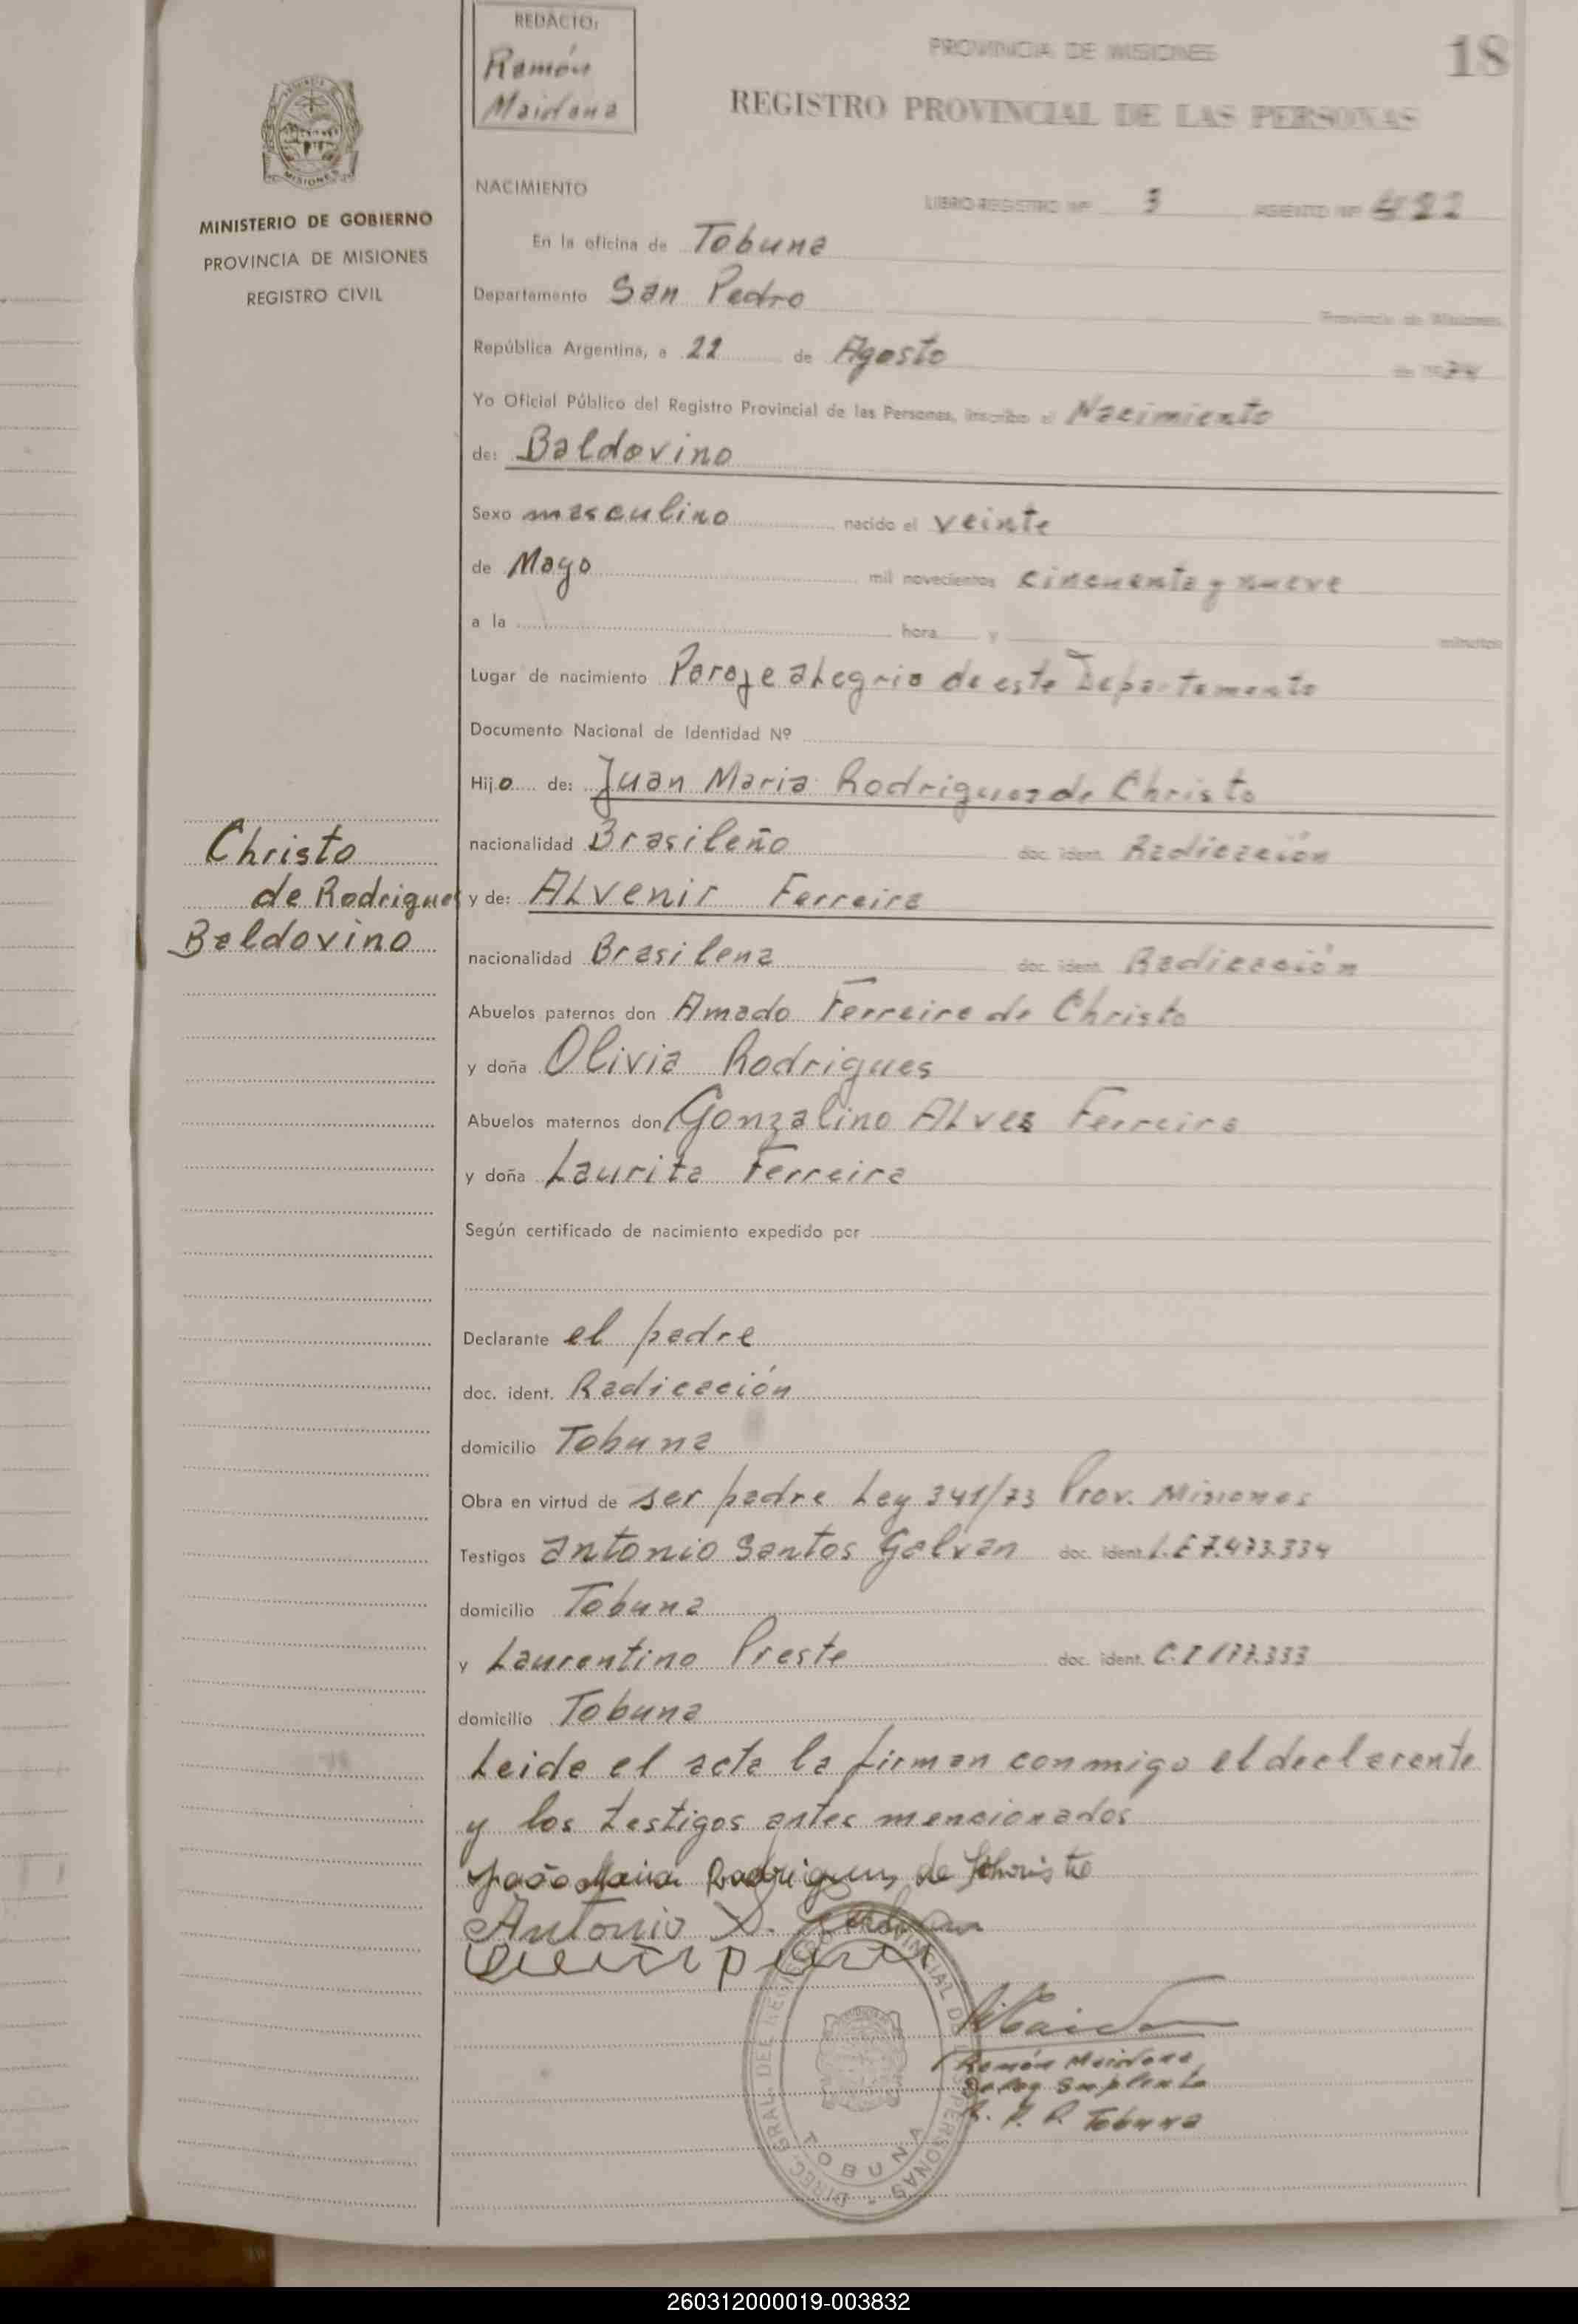 REDACTO:
Ramón
Maidana
PROVINCIA DE MISIONES
18
REGISTRO PROVINCIAL DE LAS PERSONAS
MISIONES
MINISTERIO DE GOBIERNO
PROVINCIA DE MISIONES
REGISTRO CIVIL
NACIMIENTO
LIBRO-REGISTRO Nº 3 ASIENTO Nº 422
En la oficina de Tobuna
Departamento San Pedro Provincia de Misiones,
República Argentina, a 22 de Agosto de 1974
Yo Oficial Público del Registro Provincial de las Personas, inscribo el Nacimiento
de: Baldovino
Sexo masculino nacido el veinte
de Mayo mil novecientos cincuenta y nueve
a la hora y minutos
Lugar de nacimiento Paraje alegria de este Departamento
Documento Nacional de Identidad Nº
Hijo de: Juan Maria Rodrigues de Christo
nacionalidad Brasileño doc. ident. Radicación
y de: Alvenir Ferreira
nacionalidad Brasilena doc. ident. Radicación
Abuelos paternos don Amado Ferreira de Christo
y doña Olivia Rodrigues
Abuelos maternos don Gonzalino Alves Ferreira
y doña Laurita Ferreira
Christo
de Rodrigues
Baldovino
Según certificado de nacimiento expedido por
Declarante el padre
doc. ident. Radicación
domicilio Tobuna
Obra en virtud de ser padre Ley 341/73 Prov. Misiones
Testigos Antonio Santos Galvan doc. ident. L.E 7.473.334
domicilio Tobuna
y Laurentino Preste doc. ident. C.I 177.333
domicilio Tobuna
Leida el acta la firman conmigo el declarente
y los testigos antes mencionados
João Maria Rodrigues de Christo
Antonio S. Galvan
DIREC. GRAL. DEL REGISTRO PROVINCIAL DE LAS PERSONAS -
TOBUNA
Ramón Maidana
Deleg Suplente
R. P. P. Tobuna
260312000019-003832